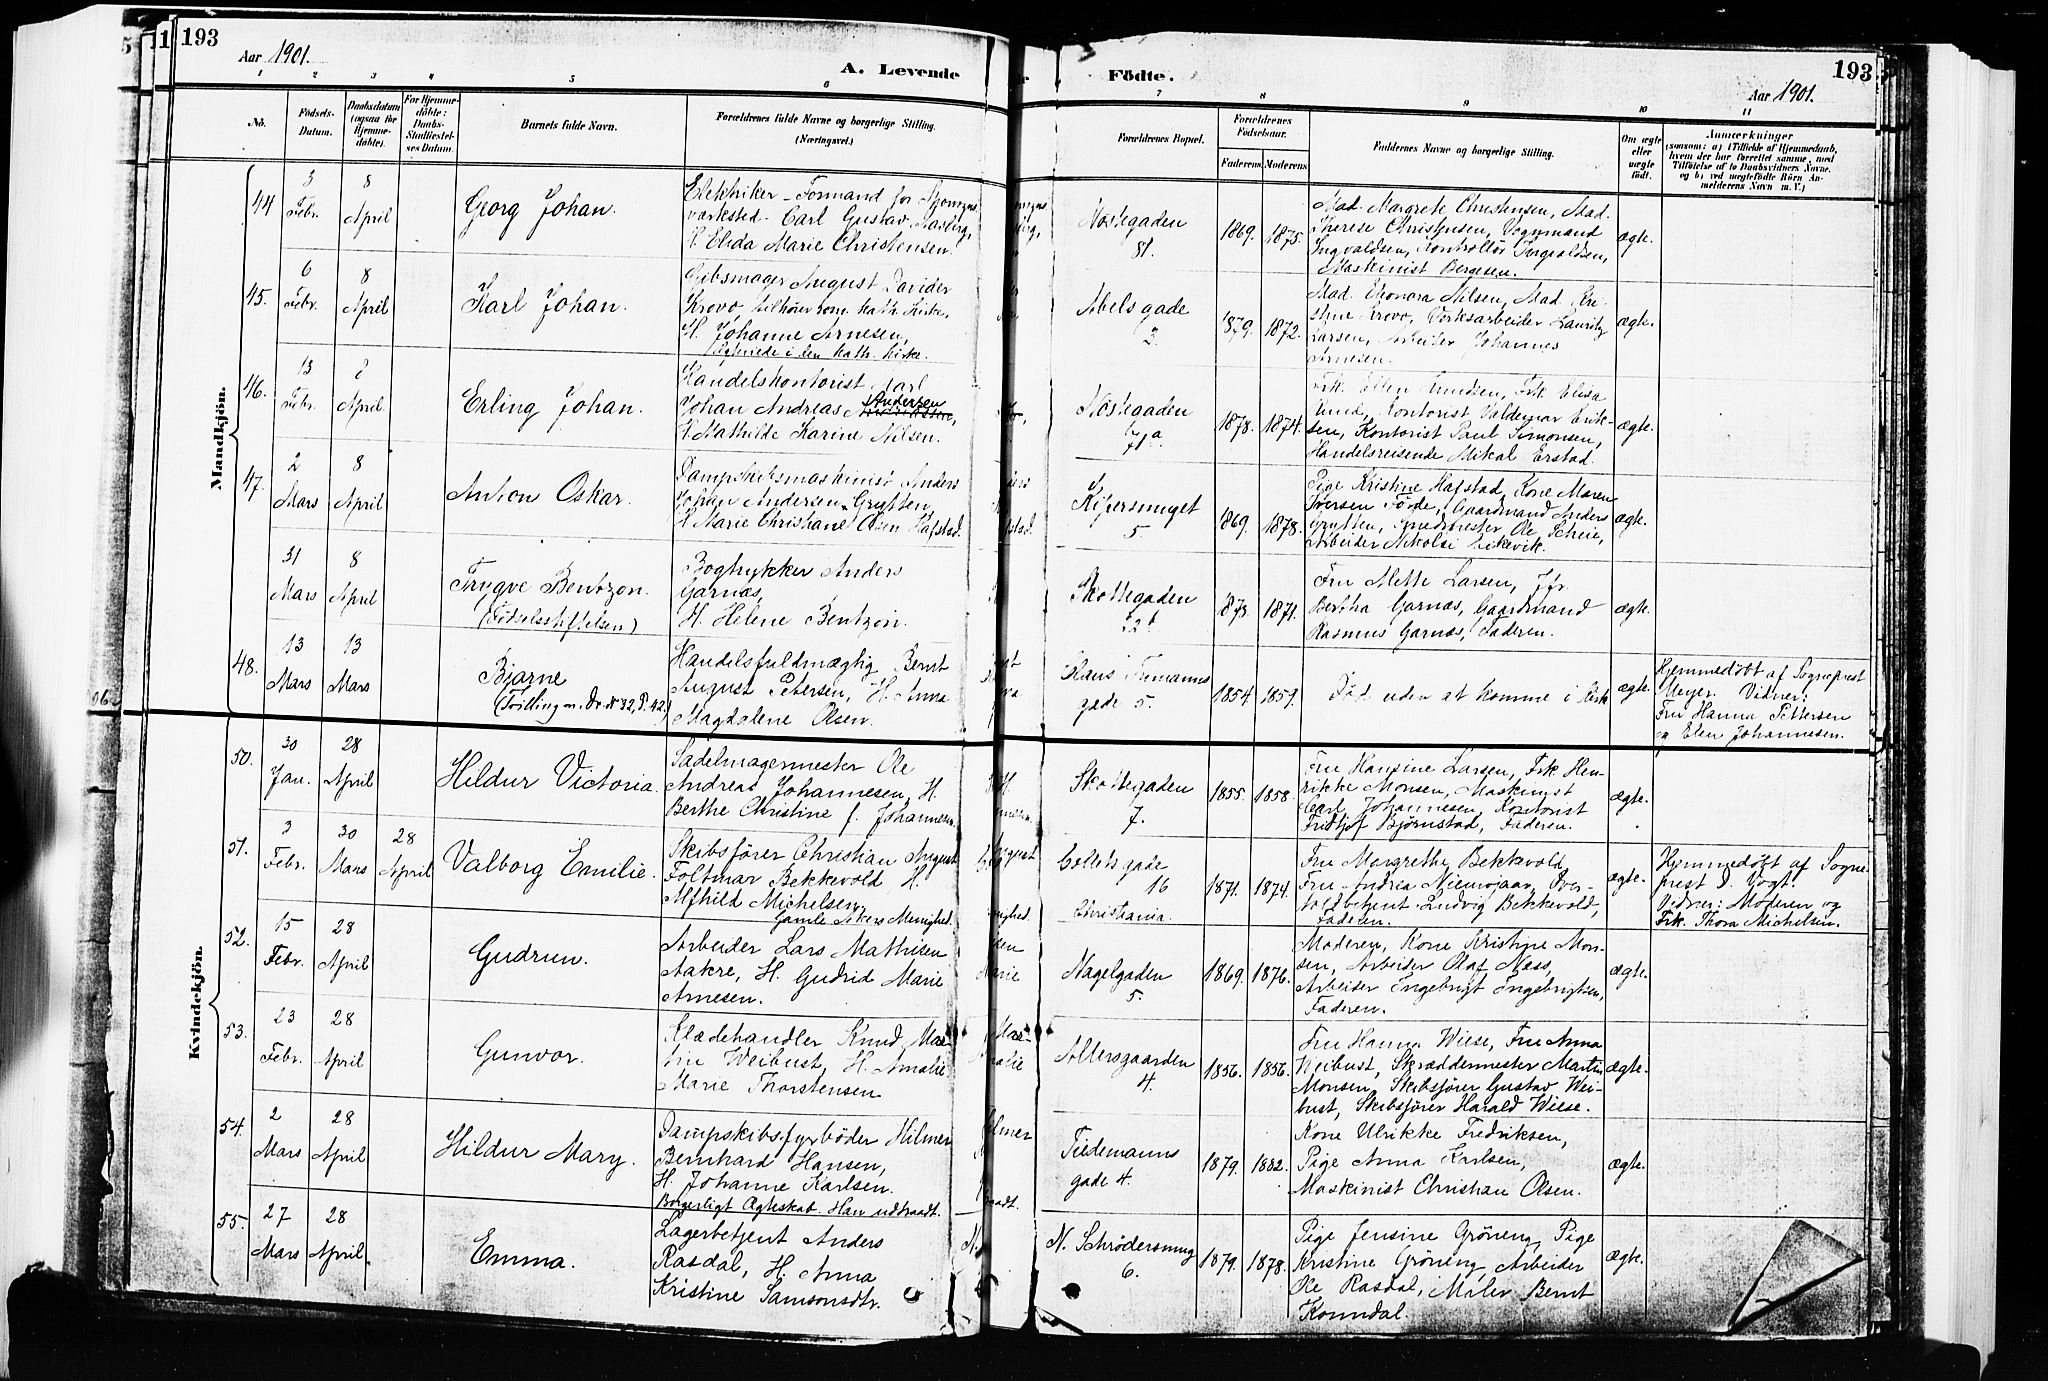 193
Aar 1901.
A. Levende
Födte.
193
Aar 1901.
1 2 3 4 5 6 7 8 9 10 11
No.
Födsels-Datum.
Daabsdatum (ogsaa for Hjemmedöbte).
For Hjemmedöbte: Daabs-Stadfæstelses Datum.
Barnets fulde Navn.
Forældrenes fulde Navne og borgerlige Stilling. (Næringsvei.)
Forældrenes Bopæl.
Forældrenes Födselsaar.
Faderens. Moderens.
Faddernes Navne og borgerlige Stilling.
Om ægte eller uægte födt.
Anmærkninger
Mandkjön.
44
3 Febr.
8 April
Georg Johan.
Elektriker-Formand for
værksted. Carl Gustav
H. Elida Marie Christensen.
Nøstegaden
81.
1869. 1875.
Mad. Margrete Christensen, Mad.
Therese Christensen, Vognmand
Ingvaldsen, Kontrollør Ingvaldsen,
Maskinist Bergesen.
ægte.
45.
6 Febr.
8 April
Karl Johan.
Gibsmager August Davider
Krovo, tilhører rom. kath. Kirke,
H. Johanne Arnesen,
i den kath. Kirke.
Abelsgade
3.
1879. 1872.
Mad. Elenora Nilsen, Mad. Kri-
stine Krovo, Verksarbeider Lauritz
Larsen, Arbeider Johannes
Arnesen.
ægte.
46.
13 Febr.
8 April
Erling Johan.
Handelskontorist Karl
Johan Andreas Andersen,
H. Mathilde Karine Nilsen.
Nøstegaden
1878. 1874.
Kontorist Valdemar Erik-
sen, Kontorist Paul Simonsen,
Handelsreisende Mikal Erstad.
ægte.
47.
2 Mars
8 April
Anton Oskar.
Dampskibsmaskinist Anders
Johan Andersen Grytten,
H. Marie Christiane Olsen Hafstad.
Kipersmuget
5.
1869. 1878.
Pige Kristine Hafstad, Kone Maren
Iversen Førde, Gaardmand Anders
Grytten, Smedmester Ole Scheie,
Arbeider Nikolai
ægte.
31 Mars
8 April
Trygve Bentzon.
(Fødselsstiftelsen)
Bogtrykker Anders
Garnæs,
H. Helene Bentzon.
Skottegaden
1873 1871.
Fru Mette Larsen, Jfr.
Bertha Garnæs, Gaardmand
Rasmus Garnæs, Faderen.
ægte.
48.
13 Mars
13 Mars
Bjarne
(Tvilling m. Nr 32, P. 42)
Handelsfuldmægtig Bernt
August Petersen, H. Anna
Magdalene Olsen.
gade 5.
1854. 1859.
Død uden at komme i Kirk
ægte.
Hjemmedøbt af Sogneprest
Meyer. Vidner:
Fru Hanna Pettersen
og Elen Johannesen.
Kvindekjön.
50.
30 Jan.
28 April
Hildur Victoria.
Sadelmagermester Ole
Andreas Johannesen, H.
Berthe Christine f. Johannesen.
Skottegaden
7.
1855. 1858.
Fru Hansine Larsen, Frk. Hen-
rikke Monsen, Maskinist
Carl Johannesen, Kontorist
Fridtjof Bjørnstad, Faderen.
ægte.
51.
3 Febr.
30 Mars
28 April
Valborg Emilie.
Skibsfører Christian August
Foltmar Bekkevold H.
Alfhild Michelsen,
Gamle Akers Menighed.
Colletsgade
16
Christiania.
1871. 1874.
Fru Margrethe Bekkevold,
Fru Andrea Niemøjaar, Over-
toldbetjent Ludvig Bekkevold,
Faderen.
ægte.
Hjemmedøbt af Sogne-
prest D. Vogt.
Vidner: Moderen og
Frk. Thora Michelsen.
52.
15 Febr.
28 April
Gudrun.
Arbeider Lars Mathisen
Aakre, H. Gudrid Marie
Arnesen.
Nagelgaden
5.
1869. 1876.
Moderen, Kone Kristine Mon-
sen, Arbeider Olaf Næss,
Arbeider Ingebrigt Ingebrigtsen,
Faderen.
ægte.
53.
23 Febr.
28 April
Gunvor.
Klædehandler Knud Mar-
tin Weibust, H. Amalie
Marie Thorstensen
Altersgaarden
4.
1856. 1856.
Fru Hanna Wiese, Fru Anna
Weibust, Skræddermester Martin
Monsen, Skibsfører Gustav Wei-
bust, Skibsfører Harald Wiese.
ægte.
54.
2 Mars
28 April
Hildur Mary.
Dampskibsfyrbøder Hilmer
Bernhard Hansen,
H. Johanne Karlsen.
Borgerligt Ægteskab. Han udtraadt.
Tidemanns
gade 4.
1879. 1882.
Kone Ulrikke Fredriksen,
Pige Anna Karlsen,
Maskinist Christian Olsen.
ægte.
55.
27 Mars
28 April
Emma.
Lagerbetjent Anders
Rasdal, H. Anna
Kristine Samsonsdtr.
N. Schrödersmug
6.
1879. 1878.
Pige Jensine Grøneng, Pige
Kristine Grøneng, Arbeider
Ole Rasdal, Maler Bernt
Romndal.
ægte.